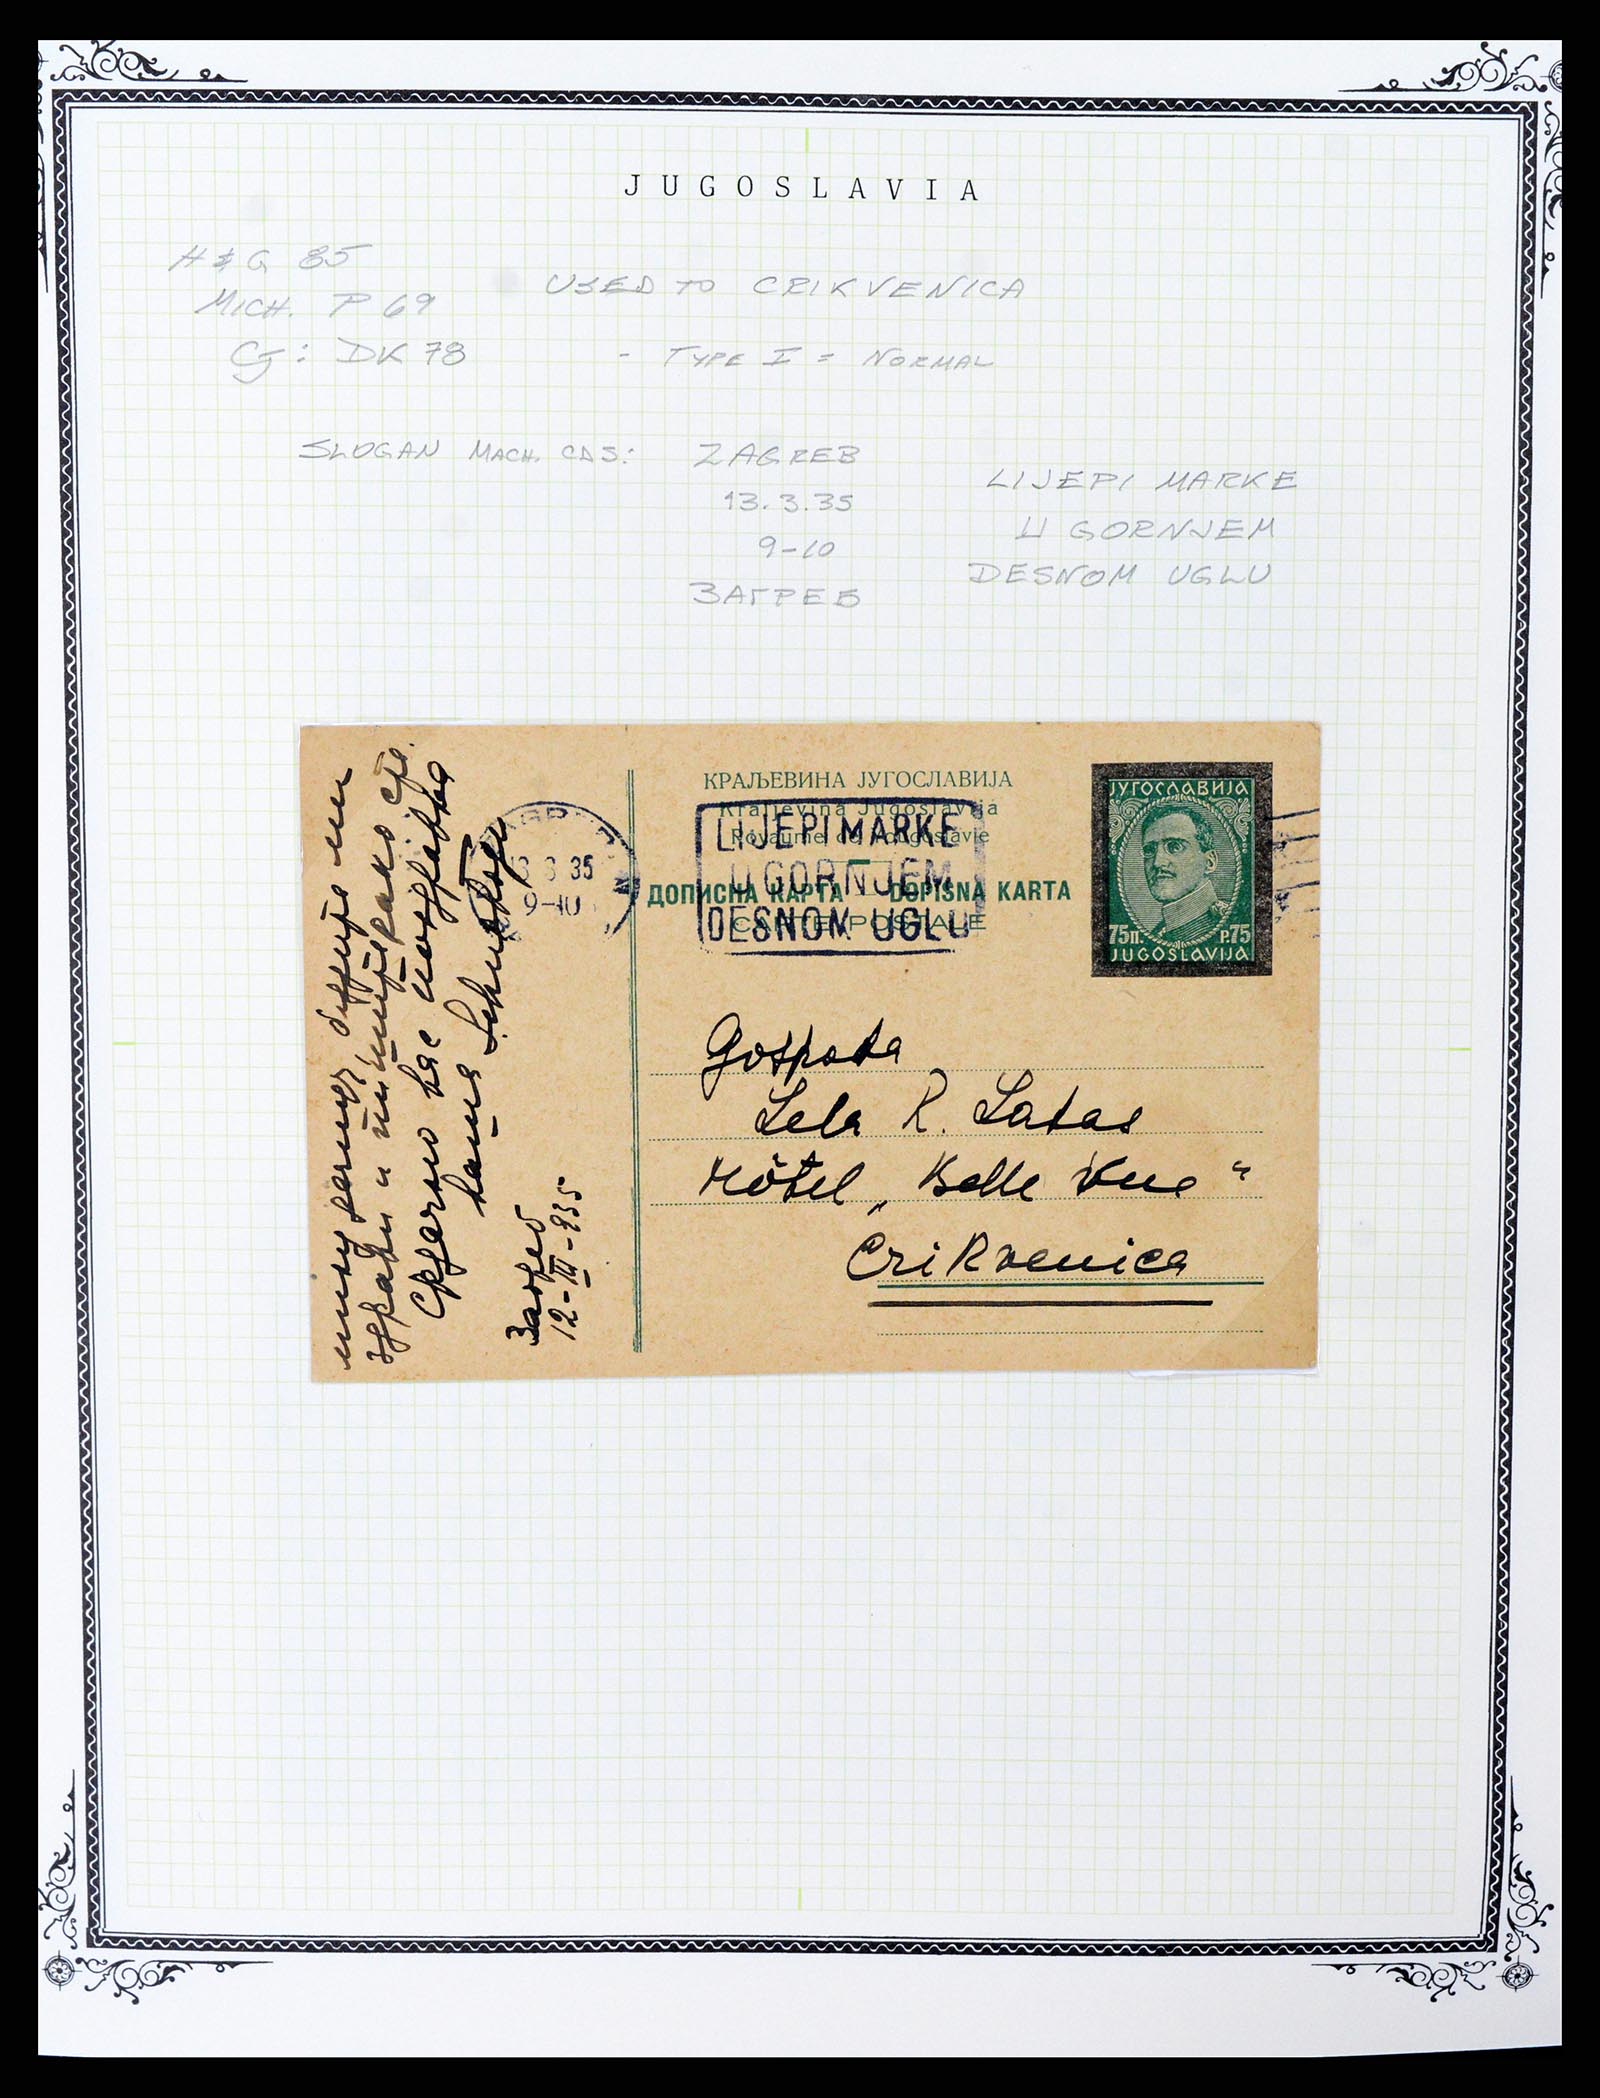 JUGOSLAVIA
H & G 85
MICH. P 69
USED TO CRIKVENICA
G: DK 78
- TYPE I = NORMAL
SLOGAN MACH. CDS: ZAGREB
13.3.35
9-10
ЗАГРЕБ
LIJEPI MARKE
U GORNJEM
DESNOM UGLU
КРАЉЕВИНА ЈУГОСЛАВИЈА
Kraljevina Jugoslavija
Royaume de Yougoslavie
ДОПИСНА КАРТА DOPISNA KARTA
CARTE POSTALE
LIJEPI MARKE
U GORNJEM
DESNOM UGLU
3 35
9-10
ЈУГОСЛАВИЈА
75п. P.75
JUGOSLAVIJA
Gospođa
Lela R. Latas
Hôtel „Belle Vue"
Crikvenica
Срдачно вас поздравља
Загреб
12-III-935